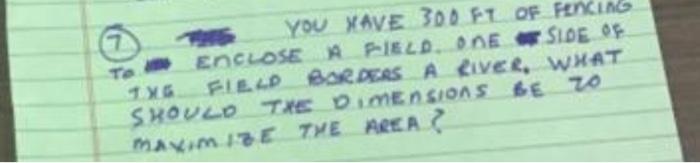 7 YOU HAVE 300 FT OF FENCING
TO ENCLOSE A FIELD. ONE SIDE OF
THE FIELD BORDERS A RIVER. WHAT
SHOULD THE DIMENSIONS BE TO
MAXIMIZE THE AREA?